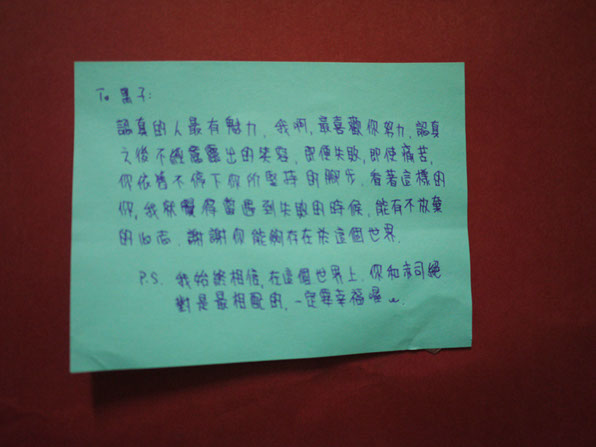 To 黑子:
認真的人最有魅力. 我啊, 最喜歡你努力, 認真
之後不經意露出的笑容. 即便失敗, 即使痛苦,
你依舊不停下你所堅持的腳步. 看著這樣的
你, 我就覺得當遇到失敗的時候, 能有不放棄
的鬥志. 謝謝你能夠存在於這個世界.
P.S. 我始終相信, 在這個世界上. 你和赤司絕
對是最相配的, 一定要幸福喔